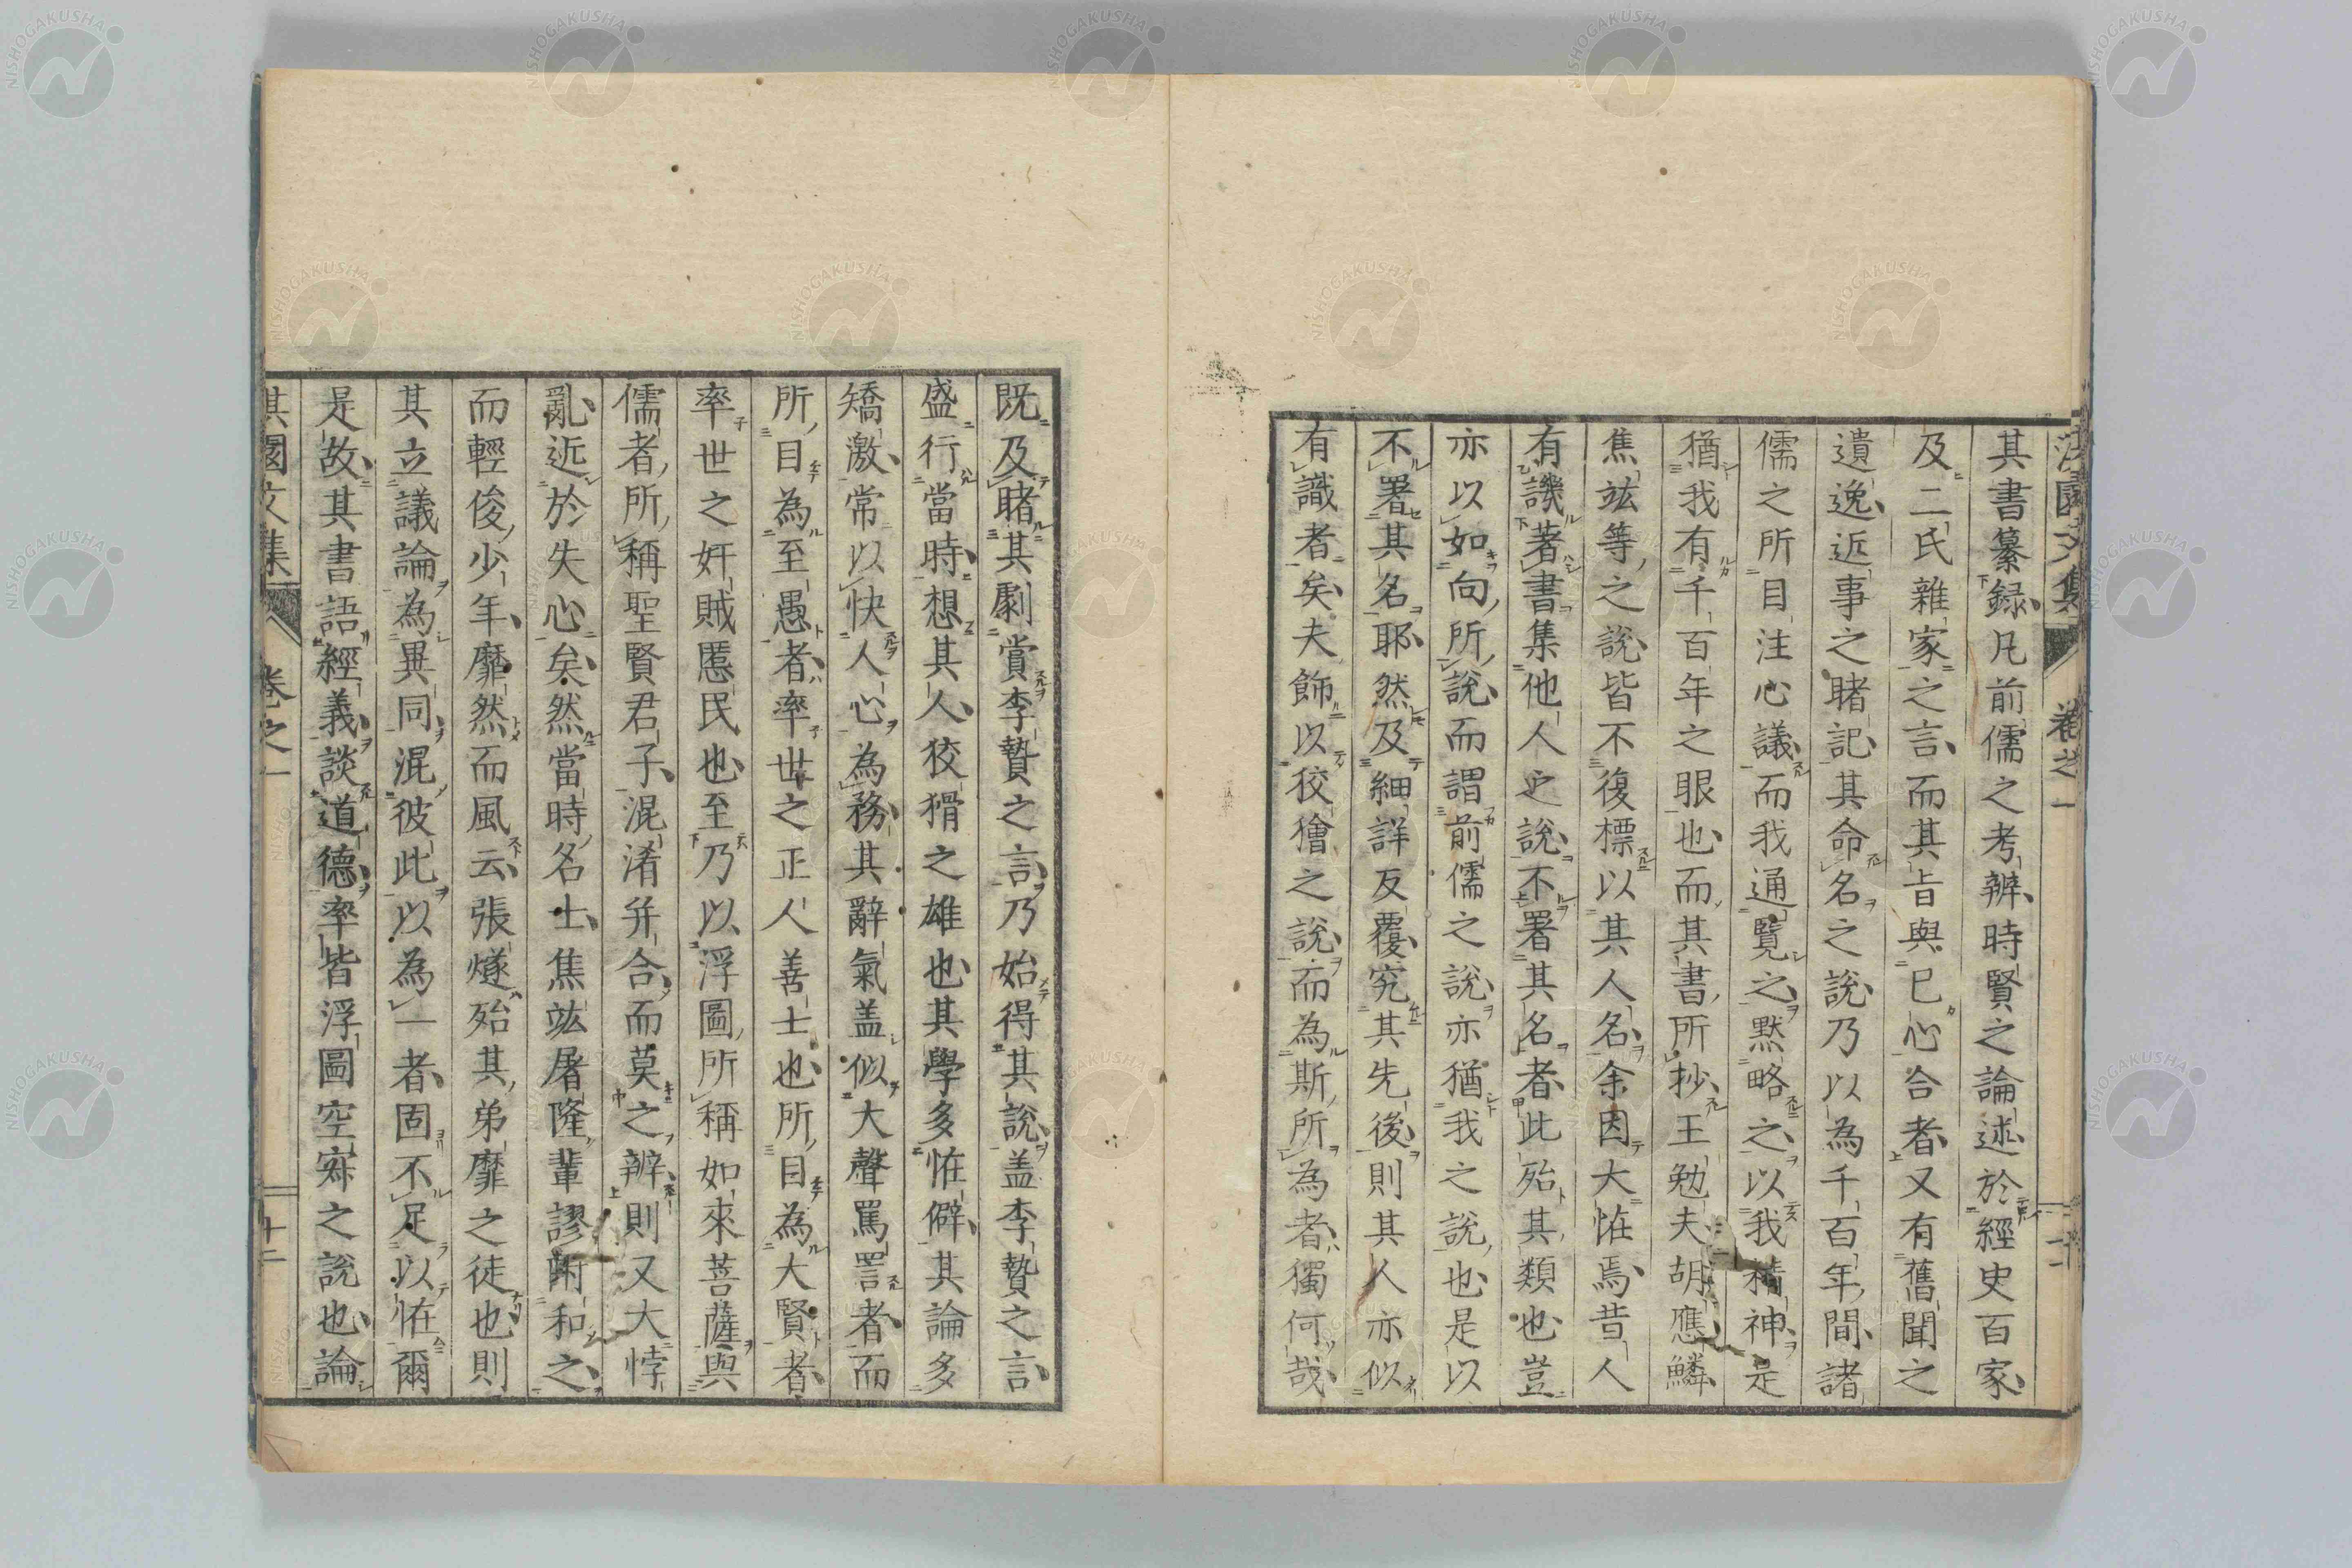 淇園文集 卷之一
其書纂録凡前儒之考辨時賢之論述於經史百家
及二氏雜家之言而其旨與已心合者又有舊聞之
遺逸近事之睹記其命名之說乃以為千百年間諸
儒之所目注心議而我通覽之黙略之以我精神是
猶我有千百年之眼也而其書所抄王勉夫胡應鱗
焦竑等之說皆不復標以其人名余因大恠焉昔人
有譏著書集他人之說不署其名者此殆其類也豈
亦以如向所說而謂前儒之說亦猶我之說也是以
不署其名耶然及細詳反覆究其先後則其人亦似
有識者矣夫飾以狡獪之說而為斯所為者獨何哉
既及睹其劇賞李贄之言乃始得其說盖李贄之言
盛行當時想其人狡猾之雄也其學多恠僻其論多
矯激常以快人心為務其辭氣盖似大聲罵詈者而
所目為至愚者率世之正人善士也所目為大賢者
率世之奸賊慝民也至乃以浮圖所稱如來菩薩與
儒者所稱聖賢君子混淆并合而莫之辨則又大悖
亂近於失心矣然當時名士焦竑屠隆輩謬附和之
而輕俊少年靡然而風云張燧殆其弟靡之徒也則
其立議論為異同混彼此以為一者固不足以恠爾
是故其書語經義談道德率皆浮圖空寂之說也論
淇園文集 卷之一 十二